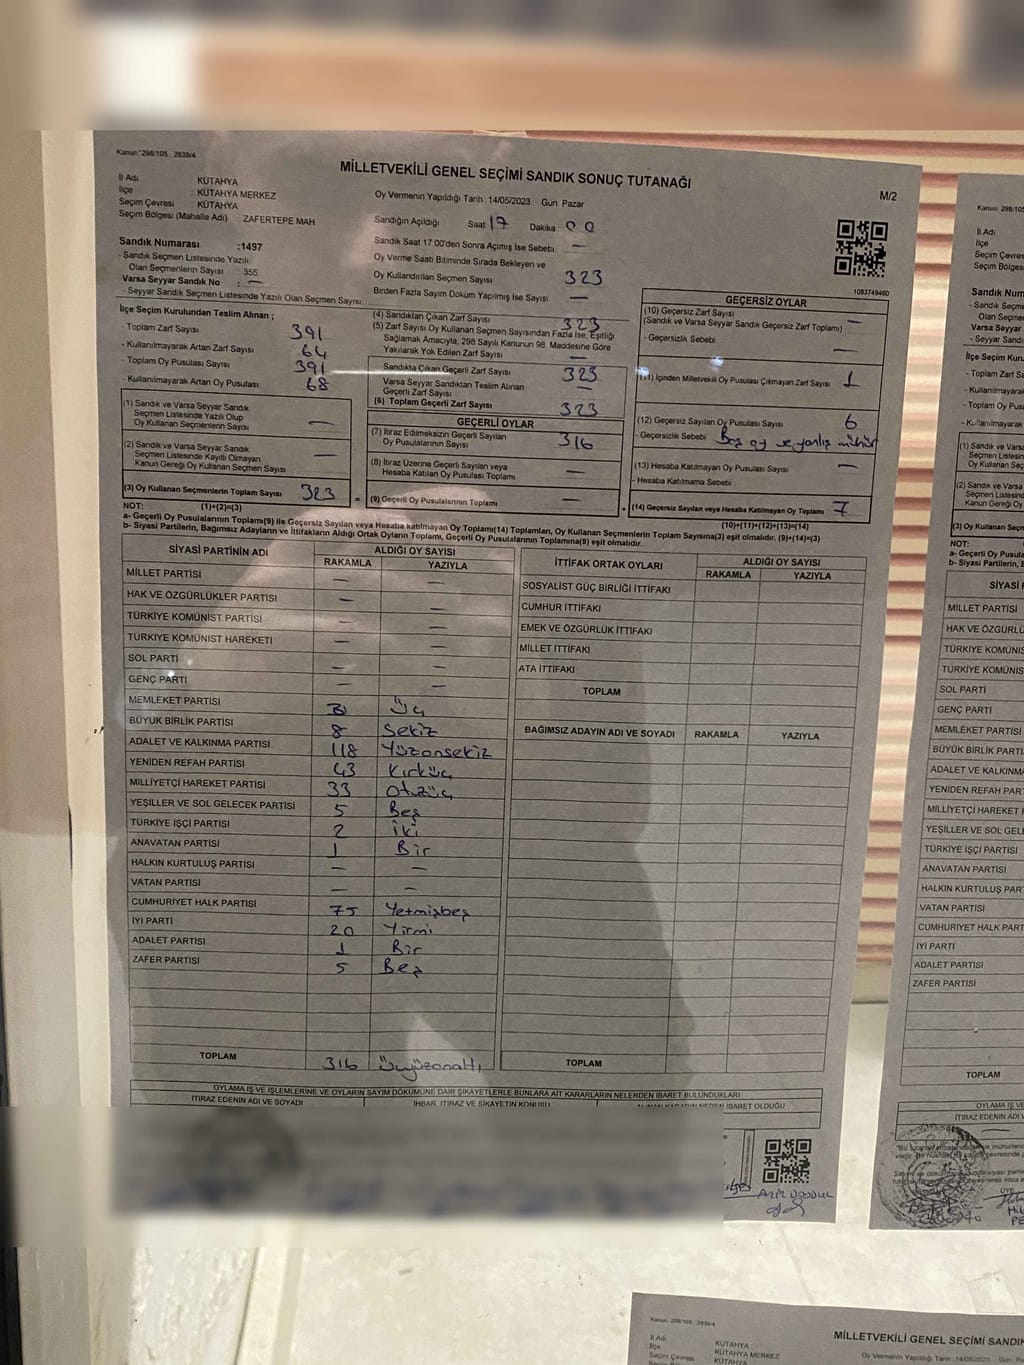 Kanun: 298/105 , 2839/4
MİLLETVEKİLİ GENEL SEÇİMİ SANDIK SONUÇ TUTANAĞI
M/2
İl Adı KÜTAHYA
İlçe KÜTAHYA MERKEZ
Seçim Çevresi KÜTAHYA
Seçim Bölgesi (Mahalle Adı) ZAFERTEPE MAH
Oy Vermenin Yapıldığı Tarih :14/05/2023 Gün Pazar
Sandığın Açıldığı Saat 17 Dakika 00
Sandık Saat 17:00'den Sonra Açımış İse Sebebi —
Oy Verme Saati Bitiminde Sırada Bekleyen ve
Oy Kullandırılan Seçmen Sayısı 323
Birden Fazla Sayım Döküm Yapılmış İse Sayısı —
Sandık Numarası :1497
- Sandık Seçmen Listesinde Yazılı
Olan Seçmenlerin Sayısı : 355
Varsa Seyyar Sandık No : —
- Seyyar Sandık Seçmen Listesinde Yazılı Olan Seçmen Sayısı
1083749460
İlçe Seçim Kurulundan Teslim Alınan ;
- Toplam Zarf Sayısı 391
- Kullanılmayarak Artan Zarf Sayısı 64
- Toplam Oy Pusulası Sayısı 391
- Kullanılmayarak Artan Oy Pusulası 68
(1) Sandık ve Varsa Seyyar Sandık
Seçmen Listesinde Yazılı Olup
Oy Kullanan Seçmenlerin Sayısı —
(2) Sandık ve Varsa Seyyar Sandık
Seçmen Listesinde Kayıtlı Olmayan
Kanun Gereği Oy Kullanan Seçmen Sayısı —
(3) Oy Kullanan Seçmenlerin Toplam Sayısı 323
(1)+(2)=(3)
(4) Sandıktan Çıkan Zarf Sayısı 323
(5) Zarf Sayısı Oy Kullanan Seçmen Sayısından Fazla İse, Eşitliği
Sağlamak Amacıyla, 298 Sayılı Kanunun 98. Maddesine Göre
Yakılarak Yok Edilen Zarf Sayısı —
Sandıkta Çıkan Geçerli Zarf Sayısı 323
Varsa Seyyar Sandıktan Teslim Alınan
Geçerli Zarf Sayısı —
(6) Toplam Geçerli Zarf Sayısı 323
GEÇERLİ OYLAR
(7) İtiraz Edilmeksizin Geçerli Sayılan
Oy Pusulalarının Sayısı 316
(8) İtiraz Üzerine Geçerli Sayılan veya
Hesaba Katılan Oy Pusulası Toplamı —
= (9) Geçerli Oy Pusulalarının Toplamı —
GEÇERSİZ OYLAR
(10) Geçersiz Zarf Sayısı
(Sandık ve Varsa Seyyar Sandık Geçersiz Zarf Toplamı) —
- Geçersizlik Sebebi —
(11) İçinden Milletvekili Oy Pusulası Çıkmayan Zarf Sayısı 1
(12) Geçersiz Sayılan Oy Pusulası Sayısı 6
- Geçersizlik Sebebi Boş oy ve yanlış mühür
(13) Hesaba Katılmayan Oy Pusulası Sayısı —
- Hesaba Katılmama Sebebi
+ (14) Geçersiz Sayılan veya Hesaba Katılmayan Oy Toplamı 7
(10)+(11)+(12)+(13)=(14)
NOT:
a- Geçerli Oy Pusulalarının Toplamı(9) ile Geçersiz Sayılan veya Hesaba katılmayan Oy Toplamı(14) Toplamları, Oy Kullanan Seçmenlerin Toplam Sayısına(3) eşit olmalıdır. (9)+(14)=(3)
b- Siyasi Partilerin, Bağımsız Adayların ve İttifakların Aldığı Ortak Oyların Toplamı, Geçerli Oy Pusulalarının Toplamına(9) eşit olmalıdır.
SİYASİ PARTİNİN ADI ALDIĞI OY SAYISI
RAKAMLA YAZIYLA
MİLLET PARTİSİ — —
HAK VE ÖZGÜRLÜKLER PARTİSİ — —
TÜRKİYE KOMÜNİST PARTİSİ — —
TÜRKİYE KOMÜNİST HAREKETİ — —
SOL PARTİ — —
GENÇ PARTİ — —
MEMLEKET PARTİSİ 3 Üç
BÜYÜK BİRLİK PARTİSİ 8 Sekiz
ADALET VE KALKINMA PARTİSİ 118 Yüzonsekiz
YENİDEN REFAH PARTİSİ 43 Kırküç
MİLLİYETÇİ HAREKET PARTİSİ 33 Otuzüç
YEŞİLLER VE SOL GELECEK PARTİSİ 5 Beş
TÜRKİYE İŞÇİ PARTİSİ 2 İki
ANAVATAN PARTİSİ 1 Bir
HALKIN KURTULUŞ PARTİSİ — —
VATAN PARTİSİ — —
CUMHURİYET HALK PARTİSİ 75 Yetmişbeş
İYİ PARTİ 20 Yirmi
ADALET PARTİSİ 1 Bir
ZAFER PARTİSİ 5 Beş
TOPLAM 316 Üçyüzonaltı
İTTİFAK ORTAK OYLARI ALDIĞI OY SAYISI
RAKAMLA YAZIYLA
SOSYALİST GÜÇ BİRLİĞİ İTTİFAKI
CUMHUR İTTİFAKI
EMEK VE ÖZGÜRLÜK İTTİFAKI
MİLLET İTTİFAKI
ATA İTTİFAKI
TOPLAM
BAĞIMSIZ ADAYIN ADI VE SOYADI RAKAMLA YAZIYLA
TOPLAM
OYLAMA İŞ VE İŞLEMLERİNE VE OYLARIN SAYIM DÖKÜMÜNE DAİR ŞİKAYETLERLE BUNLARA AİT KARARLARIN NELERDEN İBARET BULUNDUKLARI
İTİRAZ EDENİN ADI VE SOYADI İHBAR, İTİRAZ VE ŞİKAYETİN KONUSU İBARET OLDUĞU
Kanun: 298/105
İl Adı
İlçe
Seçim Çevres
Seçim Bölges
Sandık Num
MİLLET PARTİSİ
HAK VE ÖZGÜRLÜ
TÜRKİYE KOMÜNİS
TÜRKİYE KOMÜNİS
SOL PARTİ
GENÇ PARTİ
MEMLEKET PARTİSİ
BÜYÜK BİRLİK PARTİ
ADALET VE KALKINM
YENİDEN REFAH PAR
MİLLİYETÇİ HAREKET
YEŞİLLER VE SOL GELE
TÜRKİYE İŞÇİ PARTİSİ
ANAVATAN PARTİSİ
HALKIN KURTULUŞ PAR
VATAN PARTİSİ
CUMHURİYET HALK PART
İYİ PARTİ
ADALET PARTİSİ
ZAFER PARTİSİ
TOPLAM
OYLAMA İŞ V
İTİRAZ EDENİN ADI V
Kanun: 298/105 , 2839/4
MİLLETVEKİLİ GENEL SEÇİMİ SANDIK
İl Adı KÜTAHYA
İlçe KÜTAHYA MERKEZ
Seçim Çevresi KÜTAHYA
Oy Vermenin Yapıldığı Tarih :14/05/2023